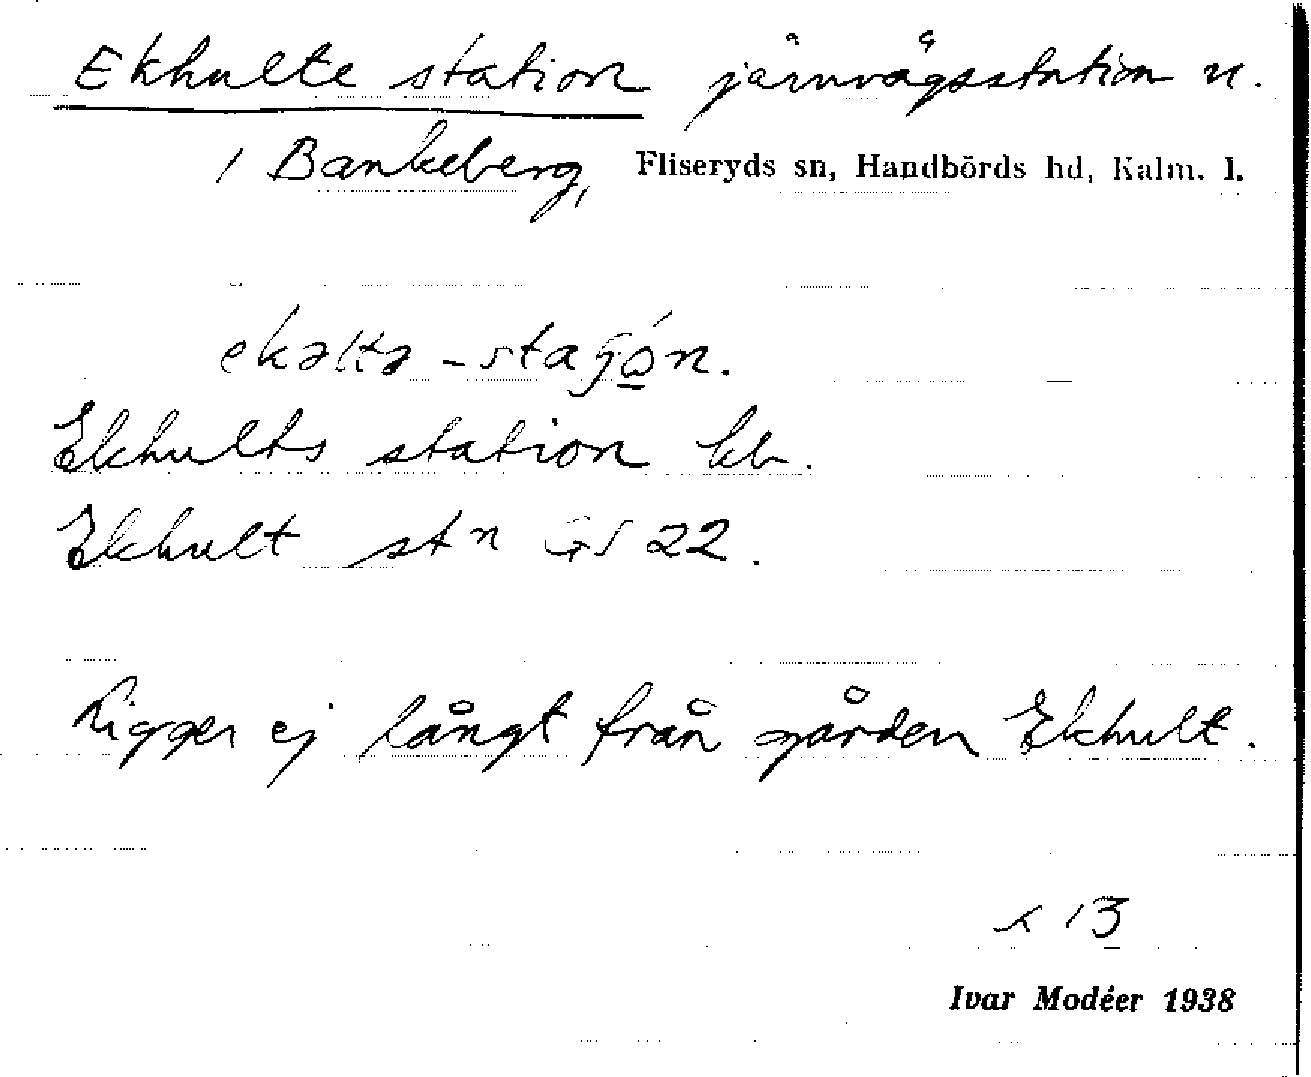 Ekhulte station järnvägsstation n.
1 Bankeberg, Fliseryds sn, Handbörds hd, Kalm. l.
ekəltə-staʃón.
Ekhults station kb.
Ekhult stn GS 22.
Ligger ej långt från gården Ekhult.
13
Ivar Modéer 1938